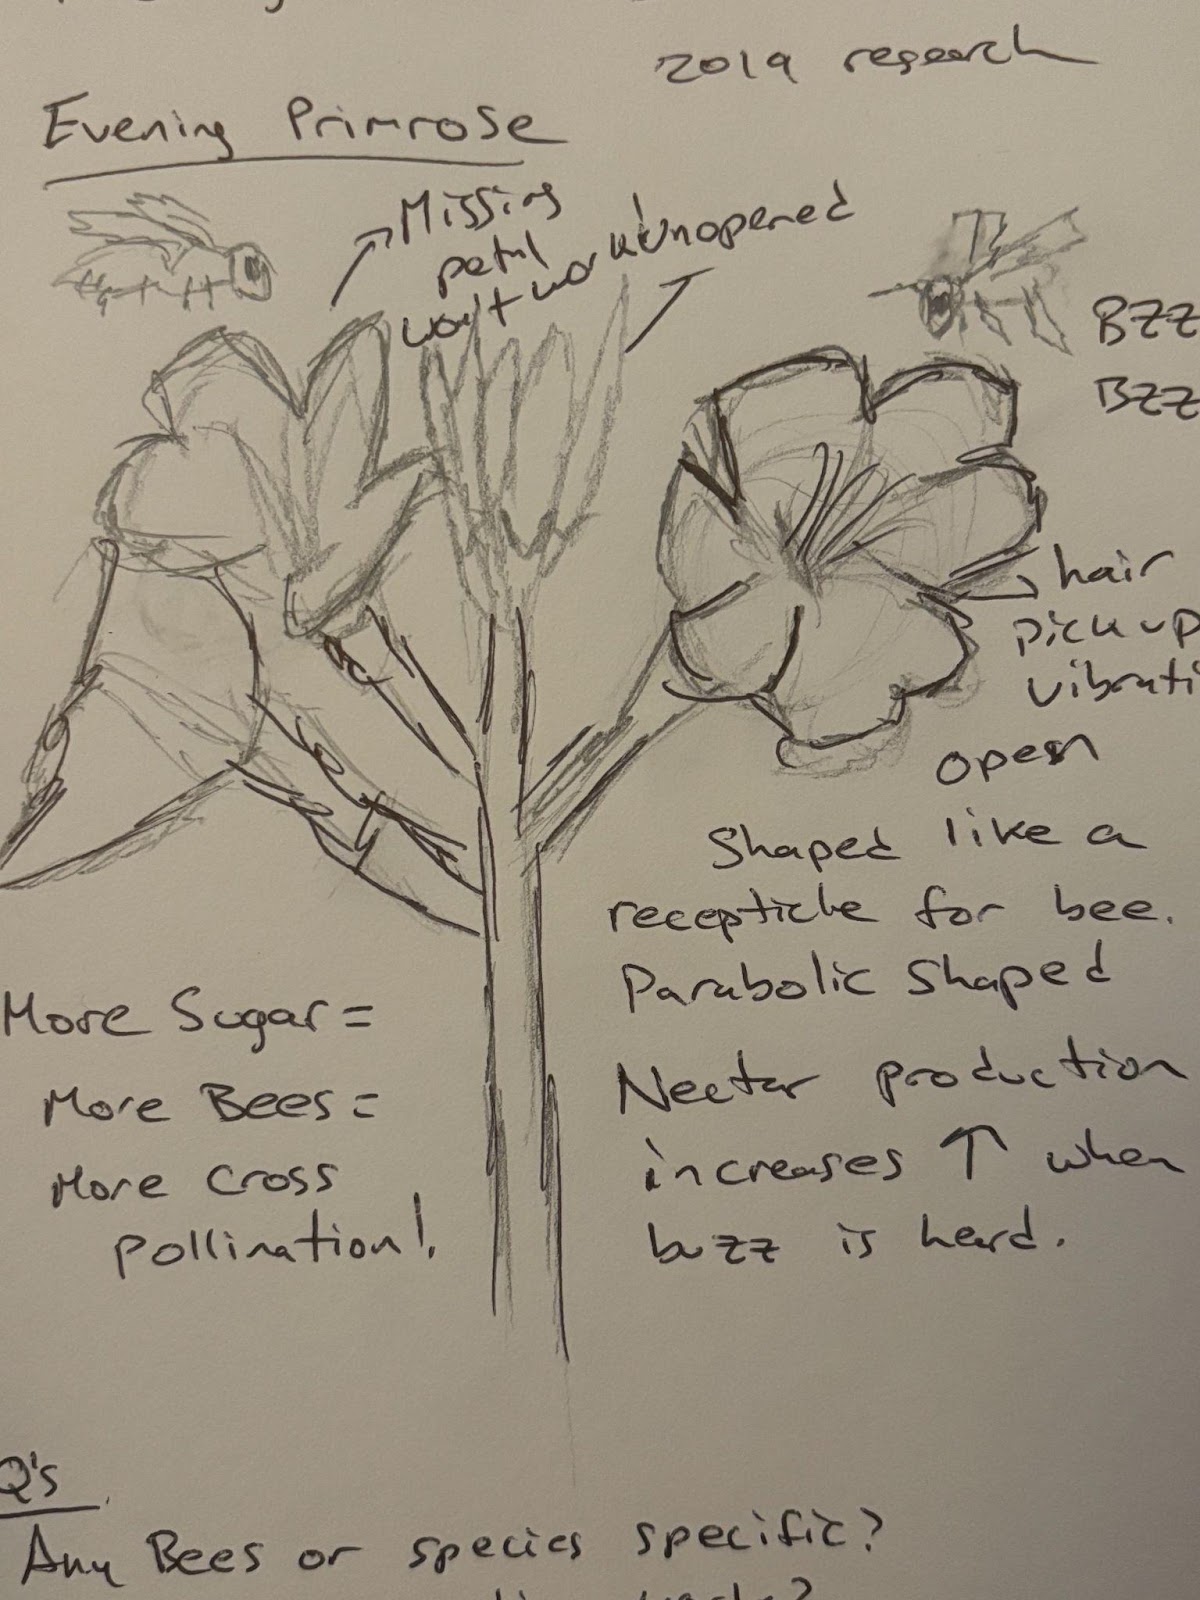 2019 research
Evening Primrose
Missing
petal
won't work
unopened
BZZ
BZZ
hair
pick up
vibrati
open
Shaped like a
recepticle for bee.
Parabolic Shaped
More Sugar =
More Bees =
More cross
pollination!
Nectar production
increases ↑ when
buzz is heard.
Q's
Any Bees or species specific?